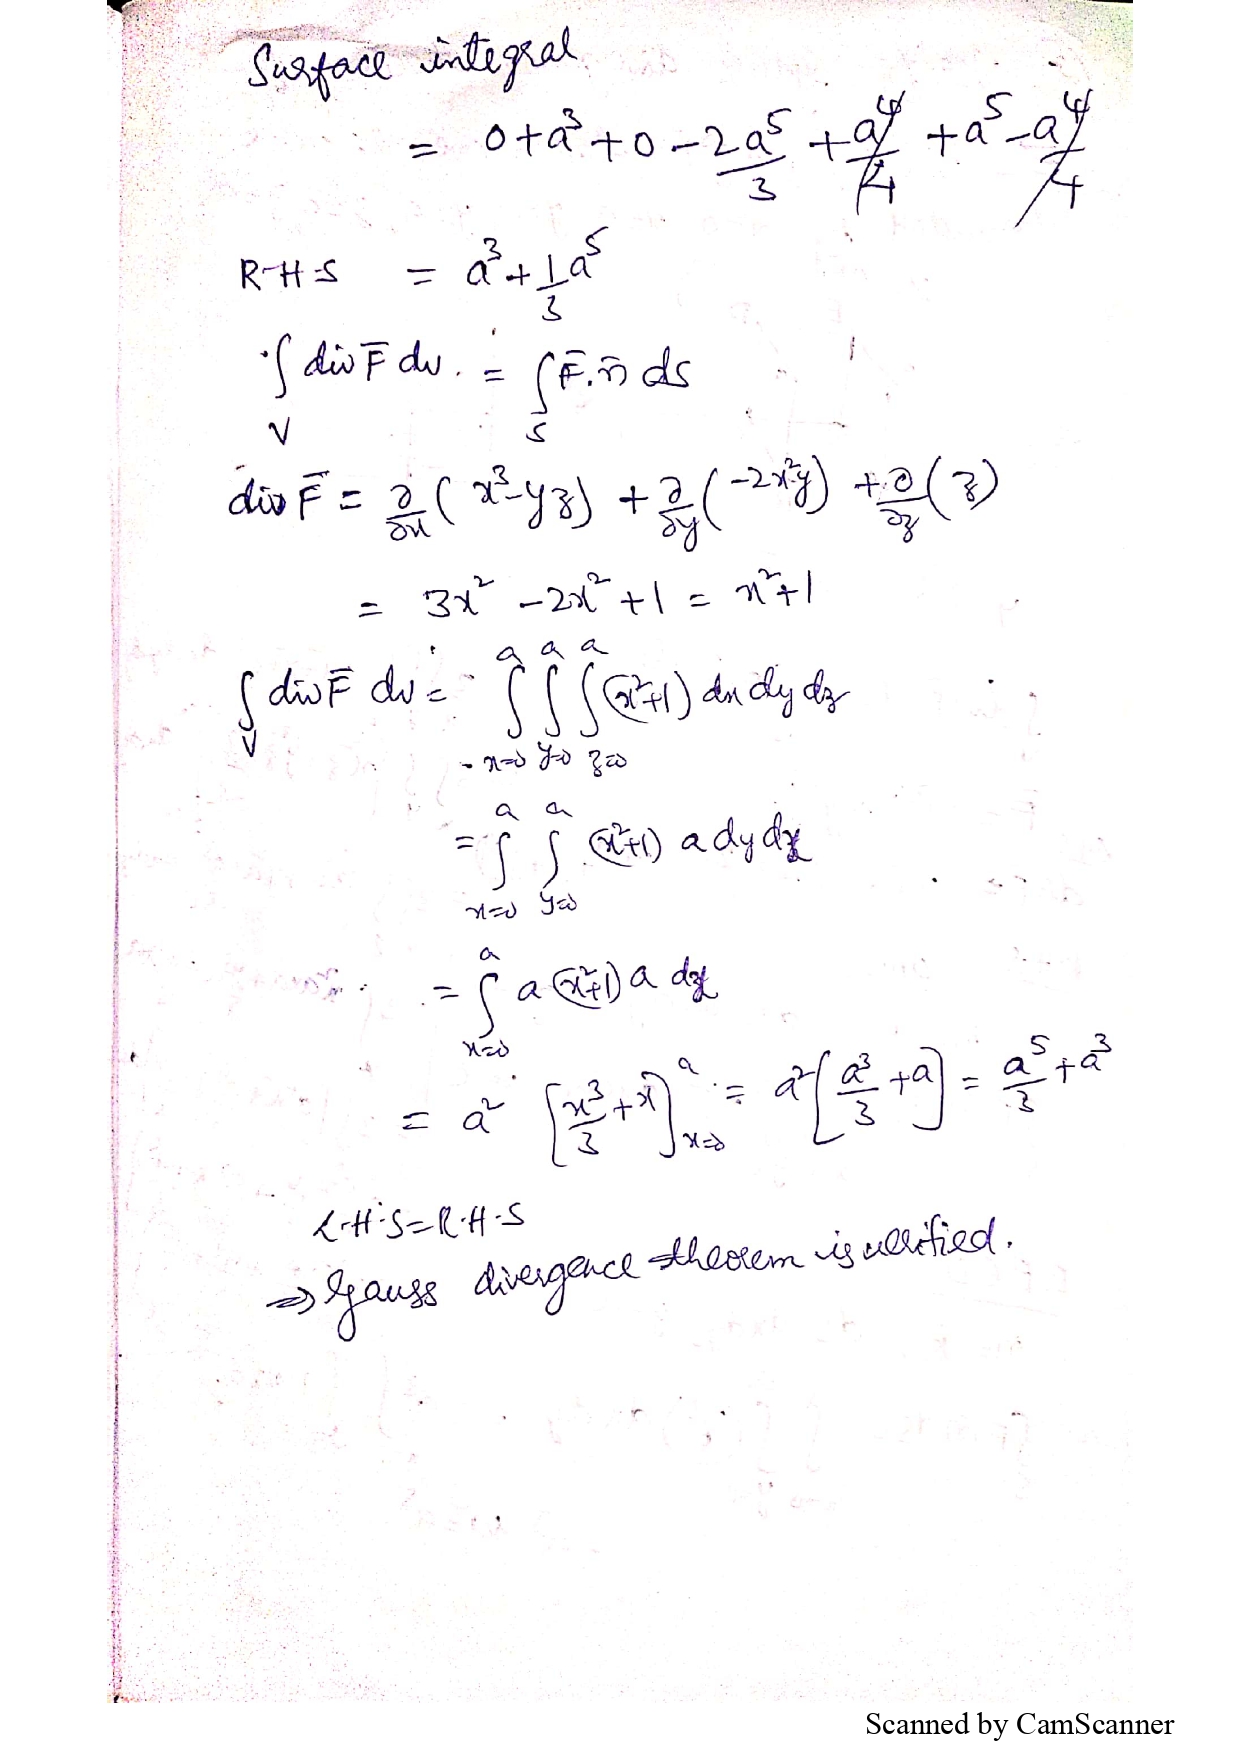 Surface integral
= 0+a³+0-2a⁵/3 +a⁴/4 +a⁵-a⁴/4
R-H-S = a³+1/3 a⁵
∫_V div F̄ dv. = ∫_S F̄.n̄ ds
div F̄ = ∂/∂x (x³-yz) + ∂/∂y (-2x²y) + ∂/∂z (z)
= 3x² -2x² +1 = x²+1
∫_V div F̄ dv = ∫_{x=0}^a ∫_{y=0}^a ∫_{z=0}^a (x²+1) dx dy dz
= ∫_{x=0}^a ∫_{y=0}^a (x²+1) a dy dx
= ∫_{x=0}^a a (x²+1) a dx
= a² [x³/3 +x]_{x=0}^a = a² [a³/3 +a] = a⁵/3 +a³
L.H.S=R.H.S
⇒ Gauss divergence theorem is verified.
Scanned by CamScanner